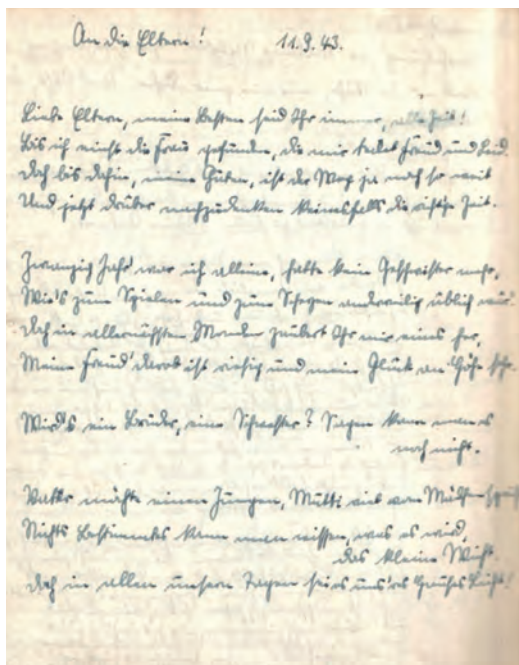 An die Eltern! 11.9.43.
Liebe Eltern, meine Besten seid Ihr immer, alle Zeit!
Bis ich einst die Frau gefunden, die mir teilet Freud und Leid.
Doch bis dahin, meine Guten, ist der Weg ja noch so weit
Und jetzt drüber nachzudenken keinesfalls die richtge Zeit.
Zwanzig Jahr' war ich alleine, hatte kein Geschwister mehr,
Wie's zum Spielen und zum anderweilig üblich wär.
Doch in allernächsten Monden zaubert Ihr mir eines her,
Meine Freud' darob ist riesig und mein Glück an Höhe sehr.
Wird's ein Bruder, eine Schwester? Sagen kann man es
noch nicht.
Vater möchte einen Jungen, Mutti viel von Mädchen spricht
Nichts Bestimmtes kann man wissen, was es wird,
das kleine Wicht.
Doch in allen unsern Tagen sei es uns'res Hauses Licht!